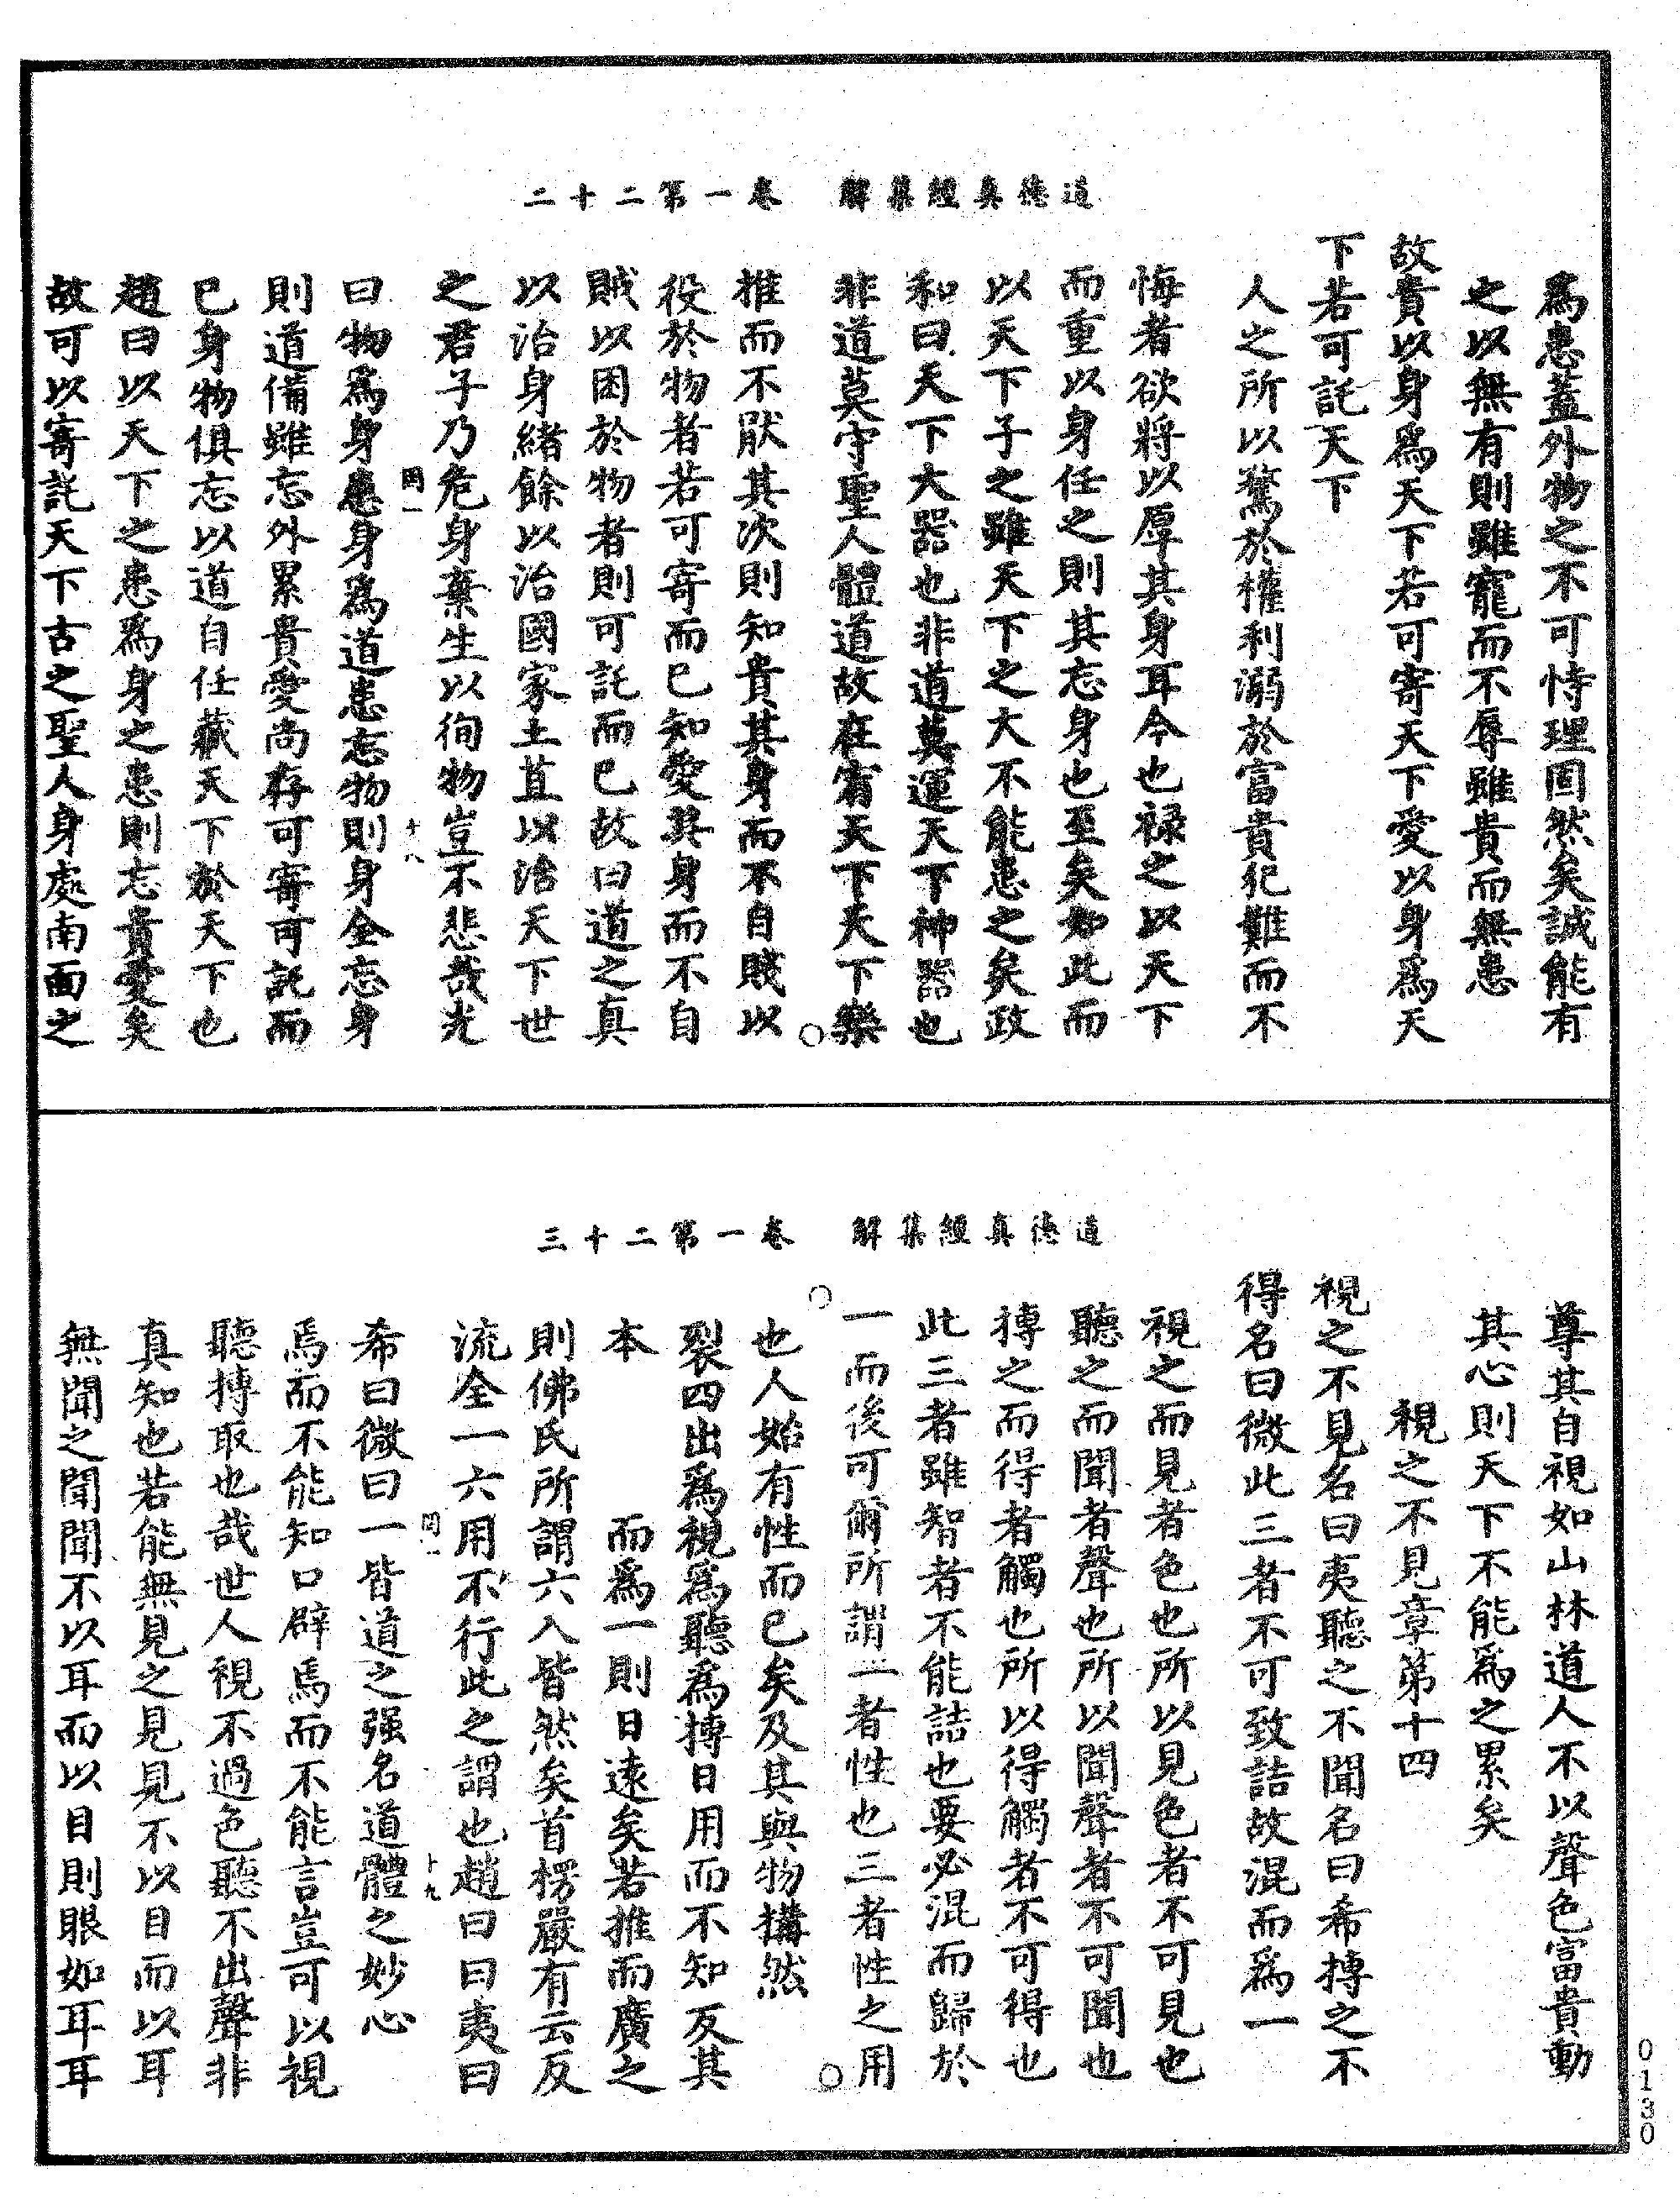 道德真經集解　卷一第二十二
爲患蓋外物之不可恃理固然矣誠能有
之以無有則雖寵而不辱雖貴而無患
故貴以身爲天下若可寄天下愛以身爲天
下若可託天下
人之所以驚於權利溺於富貴犯難而不
悔者欲將以厚其身耳今也禄之以天下
而重以身任之則其忘身也至矣如此而
以天下子之雖天下之大不能患之矣政
和曰天下大器也非道莫運天下神器也
非道莫守聖人體道故在宥天下天下樂
推而不猒其次則知貴其身而不自賤以
役於物者若可寄而已知愛其身而不自
賊以困於物者則可託而已故曰道之真
以治身緒餘以治國家土苴以治天下世
之君子乃危身棄生以徇物豈不悲哉光
聞一　十八
曰物爲身患身爲道患忘物則身全忘身
則道備雖忘外累貴愛尚存可寄可託而
已身物俱忘以道自任藏天下於天下也
趙曰以天下之患爲身之患則忘貴愛矣
故可以寄託天下古之聖人身處南面之
道德真經集解　卷一第二十三
尊其自視如山林道人不以聲色富貴動
其心則天下不能爲之累矣
視之不見章第十四
視之不見名曰夷聽之不聞名曰希搏之不
得名曰微此三者不可致詰故混而爲一
視之而見者色也所以見色者不可見也
聽之而聞者聲也所以聞聲者不可聞也
搏之而得者觸也所以得觸者不可得也
此三者雖智者不能詰也要必混而歸於
一而後可爾所謂一者性也三者性之用
也人始有性而已矣及其與物搆然
裂四出爲視爲聽爲搏日用而不知反其
本　而爲一則日遠矣若推而廣之
則佛氏所謂六入皆然矣首楞嚴有云反
流全一六用不行此之謂也趙曰曰夷曰
聞一　十九
希曰微曰一皆道之强名道體之妙心
焉而不能知口辟焉而不能言豈可以視
聽搏取也哉世人視不過色聽不出聲非
真知也若能無見之見見不以目而以耳
無聞之聞聞不以耳而以目則眼如耳耳
0130